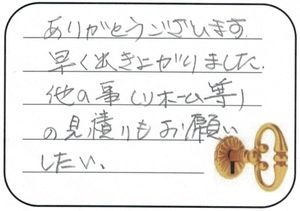 ありがとうございます
早く出きよがりました.
他の事(リホーム等)
の見積りもお願い
したい、